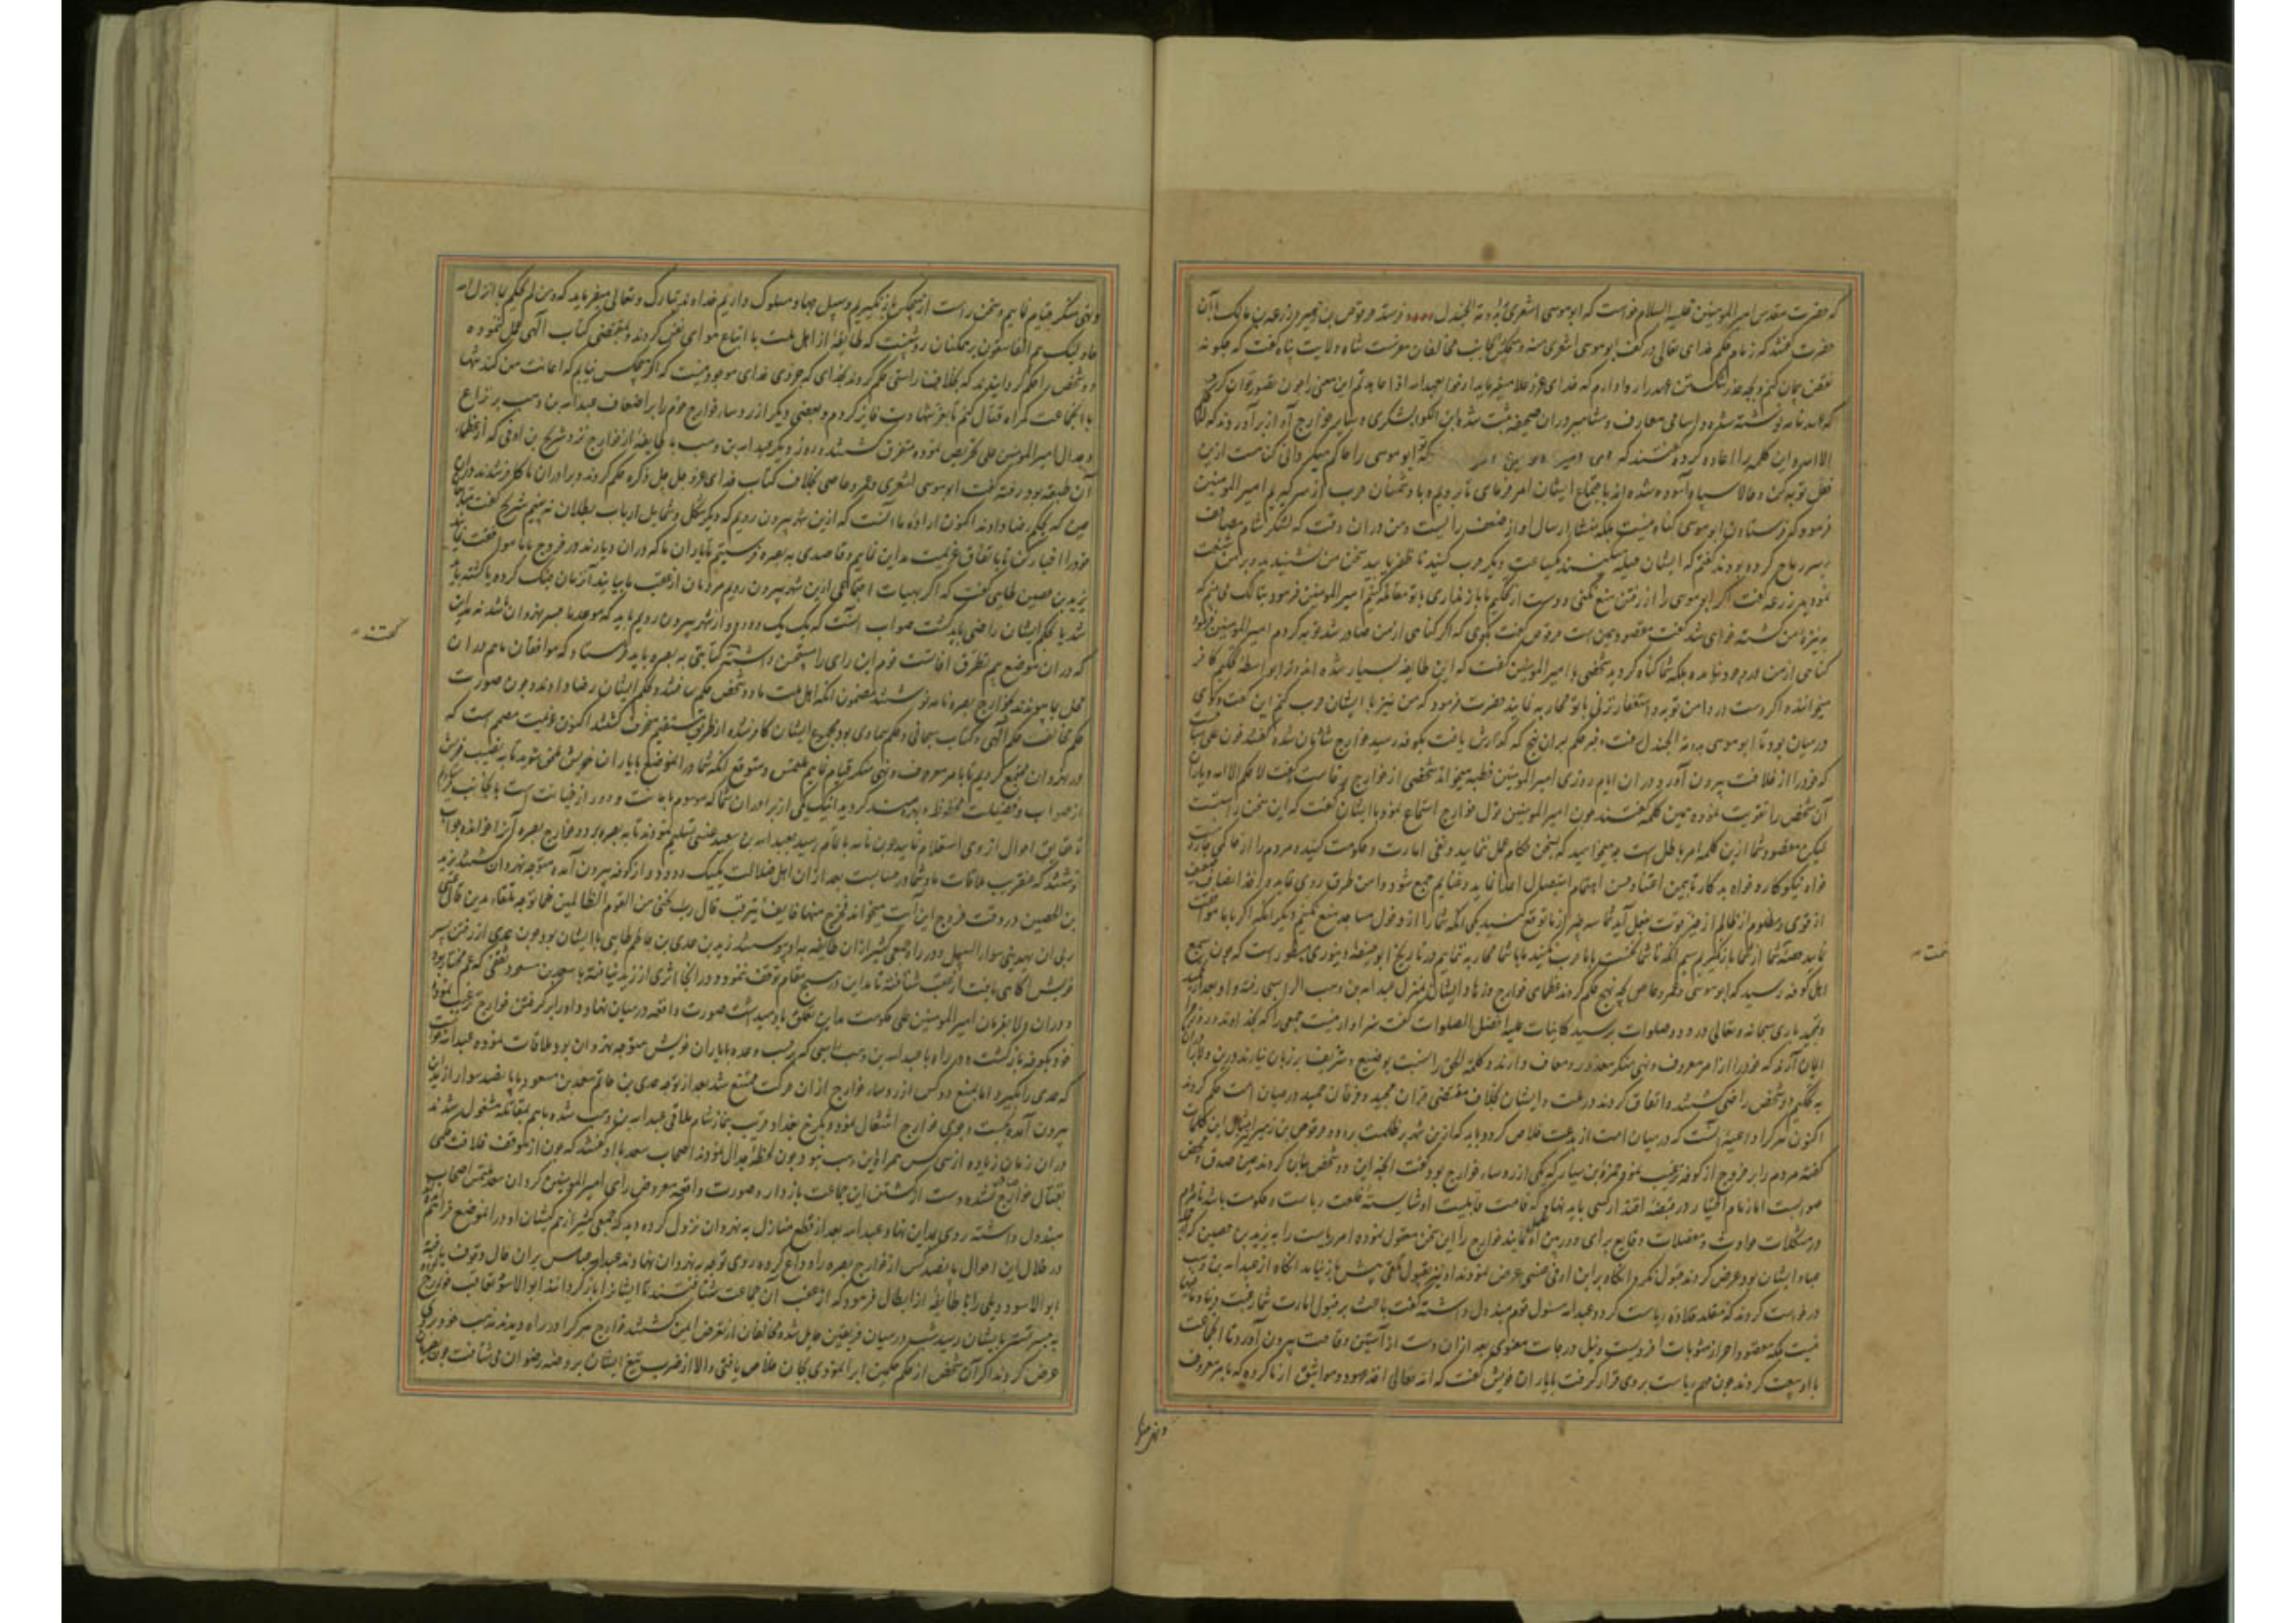 که حضرت مقدس امیرالمومنین علیه السلام خواست که ابوموسی اشعری را بدومة الجندل فرستد حرقوص بن زهیر و زرعه بن مالک با آن
حضرت گفتند که زمام حکم خدای تعالی در کف ابوموسی اشعری منه و بجنگ مخالفان معرفت شاه ولایت پناه گفت که چگونه
نقض پیمان کنم و بچه عذر شکستن عهد را روا دارم که خدای عز و علا میفرماید اوفوا بعهد الله اذا عاهدتم این معنی را چون تصور توان کرد
که نامه نوشته شد و اسامی معارف و مشاهیر در آن صحیفه ثبت شده ابن الکوا یشکری و سایر خوارج آواز برآوردند که لا حکم
الا لله و این کلمه را اعاده کرده گفتند که ابوموسی را حاکم میگردانی گناهست ازین
فعل توبه کن و حالا سپاه آسوده شده اند باجتماع ایشان امر فرمای تا برویم و با دشمنان حرب از سر گیریم امیرالمومنین
فرمود که فرستادن ابوموسی گناه نیست بلکه منشا ارسال او از ضعف رایست و من در آن وقت که لشکر شام مصاحف
بر سر رماح کرده بودند گفتم که ایشان حیله میکنند یکساعت دیگر حرب کنید تا ظفر یابید سخن من نشنیدید و بر من شنعت
نمودید زرعه گفت اگر ابوموسی را از رفتن منع نکنی و دست از تحکیم باز نداری با تو مقاتله کنیم امیرالمومنین فرمود بتاکه می بینم که
به نیزه من کشته خواهی شد گفت مقصود همین است حرقوص گفت بگوی که اگر گناهی از من صادر شد توبه کردم امیرالمومنین فرمود
گناهی از من در وجود نیامده بلکه شما گناه کردید شخصی با امیرالمومنین گفت که این طایفه بسیار شده اند و ترا بواسطه تحکیم کافر
میخوانند و اگر دست در دامن توبه و استغفار نزنی با تو محاربه نمایند حضرت فرمود که من نیز با ایشان حرب کنم این گفت و گوی
در میان بود تا ابوموسی بدومة الجندل رفت و خبر حکم بران نهج که گذارش یافت بکوفه رسید خوارج شادمان شده گفتند خون علی مباحست
که خود را از خلافت بیرون آورد و در آن ایام روزی امیرالمومنین خطبه میخواند شخصی از خوارج برخاست گفت لا حکم الا لله و یاران
آن شخص را تقویت نموده همین کلمه گفتند چون امیرالمومنین قول خوارج استماع نمود با ایشان گفت که این سخن راستست
لیکن مقصود شما ازین کلمه امر باطل است و میخواهید که بسخن حکام عمل ننمایید و نفی امارت و حکومت کنید و مردم را از حاکمی چاره نیست
خواه نیکوکار و خواه بدکار
از قوی و مظلوم از ظالم از حیز قوت بفعل آید شما سه چیز از ما توقع کنید یکی انکه شما را از دخول مساجد منع نکنیم دیگر انکه اگر با ما موافقت
نمایید حصه شما از شما باز نگیریم سیم انکه تا شما نخست با ما حرب نکنید ما با شما محاربه ننماییم در تاریخ ابوحنیفه دینوری مسطور است که چون بسمع
اهل کوفه رسید که ابوموسی و عمرو عاص بچه نهج حکم کردند عظمای خوارج وزها و ایشان بمنزل عبدالله بن وهب الراسبی رفته و او بعد از تحمید
و تمجید باری سبحانه و تعالی و درود و صلوات بر سید کاینات علیه افضل الصلوات گفت سزاوار نیست جمعی را که بخداوند
ایمان آرند که خود را از امر معروف و نهی منکر معذور و معاف دارند و کلمة الحق را نسبت بوضیع و شریف بر زبان نیارند
به تحکیم دو شخص راضی گشتند و اتفاق کردند و ایشان بخلاف مقتضی قران مجید و فرقان حمید در میان امت حکم کردند
اکنون هر کرا داعیه آنست که در میان امت از بدعت خلاص گردد باید که ازین شهر پر ظلمت برود و حرقوص بن زهیر امثال این کلمات
گفته مردم را بر خروج از کوفه ترغیب نمود حمزه بن سیار که یکی از روسا خوارج بود گفت آنچه این دو شخص بیان کردند عین صدق و محض
صوابست اما زمام اختیار در قبضه اقتدار کسی باید نهاد که قامت قابلیت او شایسته خلعت ریاست و حکومت باشد تا مردم
در مشکلات حوادث و معضلات وقایع برای دوربین او عمل نمایند خوارج را این سخن معقول نموده امر ریاست را به یزید بن حصین که از
عباد ایشان بود عرض کردند قبول نکرد و انگاه بر ابن اوفی عبسی عرض نمودند او نیز بقبول تلقی پیش نیامد انگاه از عبدالله بن وهب
درخواست کردند که متقلد قلاده ریاست گردد عبدالله مسئول قوم مبذول داشته گفت باعث بر قبول امارت شما رغبت دنیا و متاع
نیست بلکه مقصود احراز مثوبات اخرویست و نیل درجات معنوی بعد ازان دست از آستین وقاحت بیرون آورد تا آنجماعت
با او بیعت کردند چون مهم ریاست بر وی قرار گرفت با یاران خویش گفت که الله تعالی اخذ عهود و مواثیق از ما کرده که بامر معروف
و نهی منکر
و نهی منکر قیام نماییم و سخن راست از هیچکس باز نگیریم و سبیل جهاد مسلوک داریم خداوند تبارک و تعالی میفرماید که و من لم یحکم بما انزل الله
فاولیک هم الفاسقون بر همکنان روشنست که طایفه از اهل ملت ما اتباع هوای نفس کردند و بمقتضی کتاب الهی عمل ننموده
دو شخص را حکم گردانیدند که بخلاف راستی حکم کردند بخدای که جز وی خدای موجود نیست که اگر هیچکس نیابم که اعانت من کند تنها
با آنجماعت گمراه قتال کنم تا بعز شهادت فایز گردم و بعضی دیگر از روسا خوارج قوم را بر اضعاف عبدالله بن وهب بر نزاع
و جدال امیرالمومنین علی تحریص نموده متفرق گشتند و روز دیگر عبدالله بن وهب با طایفه از خوارج نزد شریح بن اوفی که از عظماء
آن طبقه بود رفته گفت ابوموسی اشعری و عمرو عاصی بخلاف کتاب خدای عز و جل جل ذکره حکم کردند و برادران ما کافر شدند
حین که بحکم رضا دادند اکنون اراده ما آنست که ازین شهر بیرون رویم که دیگر شکل و شمایل ارباب بطلان نه بینیم شریح گفت
خود را اخبار کن تا باتفاق عزیمت مداین نماییم و قاصدی به بصره فرستیم تا یاران ما که در آن دیارند در خروج با ما موافقت نمایند
یزید بن حصین طایی گفت که اگر بهیات اجتماعی ازین شهر بیرون رویم مردمان از عقب ما بیایند آنزمان جنگ کرده یا کشته باید
شد یا بحکم ایشان راضی باید گشت صواب آنست که یک یک و دو دو از شهر بیرون رویم باید که موعد ما جسر نهروان باشد نه مداین
گفتند
که در آن موضع بیم تطرق آفاتست قوم این رای را مستحسن داشته گفتند کتابتی به بصره باید فرستاد که موافقان ما هم در آن
محل بما پیوندند بخوارج بصره نامه نوشتند مضمون انکه اهل ملت ما دو شخص حکم ساختند و بحکم ایشان رضا دادند و چون صورت
حکم مخالف حکم الهی و کتاب سبحانی و حکم سماوی بود مجموع ایشان کافر شده از طریق مستقیم منحرف گشتند اکنون عزیمت مصمم است که
در نهروان مجتمع گردیم تا بامر معروف و نهی منکر قیام نماییم ملتمس و متوقع انکه شما در آنموضع با یاران خویش ملحق شوید تا به نصیب خویش
از ثواب و فضیلت محظوظ و بهره مند گردید اینک یکی از برادران شما که موسوم بامانت و دور از خیانت است بانجانب میفرستیم
تا حقایق احوال از وی استعلام نمایید چون نامه باتمام رسید بعبدالله بن سعید عبسی تسلیم نمودند تا به بصره برد و خوارج بصره آنرا خوانده جواب
نوشتند که عنقریب ملاقات ما و شما در میانست بعد ازان اهل ضلالت یک یک و دو دو از کوفه بیرون آمده متوجه نهروان گشتند یزید
بن الحصین در وقت خروج این آیت میخواند فخرج منها خایفا یترقب قال رب نجنی من القوم الظالمین فلما توجه تلقاء مدین قال عسی
ربی ان یهدینی سواء السبیل و در راه جمعی کثیر ازان طایفه به او پیوستند زید بن عدی بن حاتم طایی با ایشان بود چون عدی از رفتن پسر
خویش آگاهی یافت از عقب شتافته تا مداین در هیچ مقام توقف ننمود و در آنجا اثری از زید نیافته با سعد بن مسعود ثقفی که عم مختار بود
و در آن ولا بفرمان امیرالمومنین علی حکومت مداین تعلق باو میداشت صورت واقعه در میان نهاد و او را بر گرفتن خوارج ترغیب نموده
خود بکوفه بازگشت و در راه با عبدالله بن وهب راسبی که بر حسب وعده با یاران خویش متوجه نهروان بود ملاقات نموده عبدالله خواست
که عدی را بگیرد اما بمنع دو کس از روسا خوارج ازان حرکت ممتنع شد بعد از توجه عدی بن حاتم سعد بن مسعود با پانصد سوار از مداین
بیرون آمده بجست و جوی خوارج اشتغال نمود و بکرخ بغداد قریب بنماز شام ملاقی عبدالله بن وهب شده باهم بمقاتله مشغول شدند
و در آن زمان زیاده از سی کس همراه ابن وهب نبود چون لحظه جدال نمودند اصحاب سعد با او گفتند که چون از موقف خلافت حکمی
بقتال خوارج صادر نشده دست از کشتن این جماعت باز دار و صورت واقعه معروض رای امیرالمومنین گردان سعد ملتمس اصحاب
مبذول داشته روی بمداین نهاد و عبدالله بعد از قطع منازل به نهروان نزول کرده دید که جمعی کثیر از هم کیشان او در آنموضع فراهم آمده اند
در خلال این احوال پانصد کس از خوارج بصره راه وداع کرده روی توجه به نهروان نهادند عبدالله عباس بران حال وقوف یافته
ابوالاسود دیلی را با طایفه از ابطال فرمود که از عقب آن جماعت شتافتند تا ایشان را باز گردانند ابوالاسود تعاقب خوارج
به جسر تستر بایشان رسید شب در میان فریقین حایل شده مخالفان از تعرض ایمن گشتند خوارج هر کرا در راه دیدند مذهب خود بر وی
عرض کردند اگر آن شخص از حکم حکمین ابرا نمودی بجان خلاص یافتی و الا از ضرب تیغ ایشان بروضه رضوان می شتافت